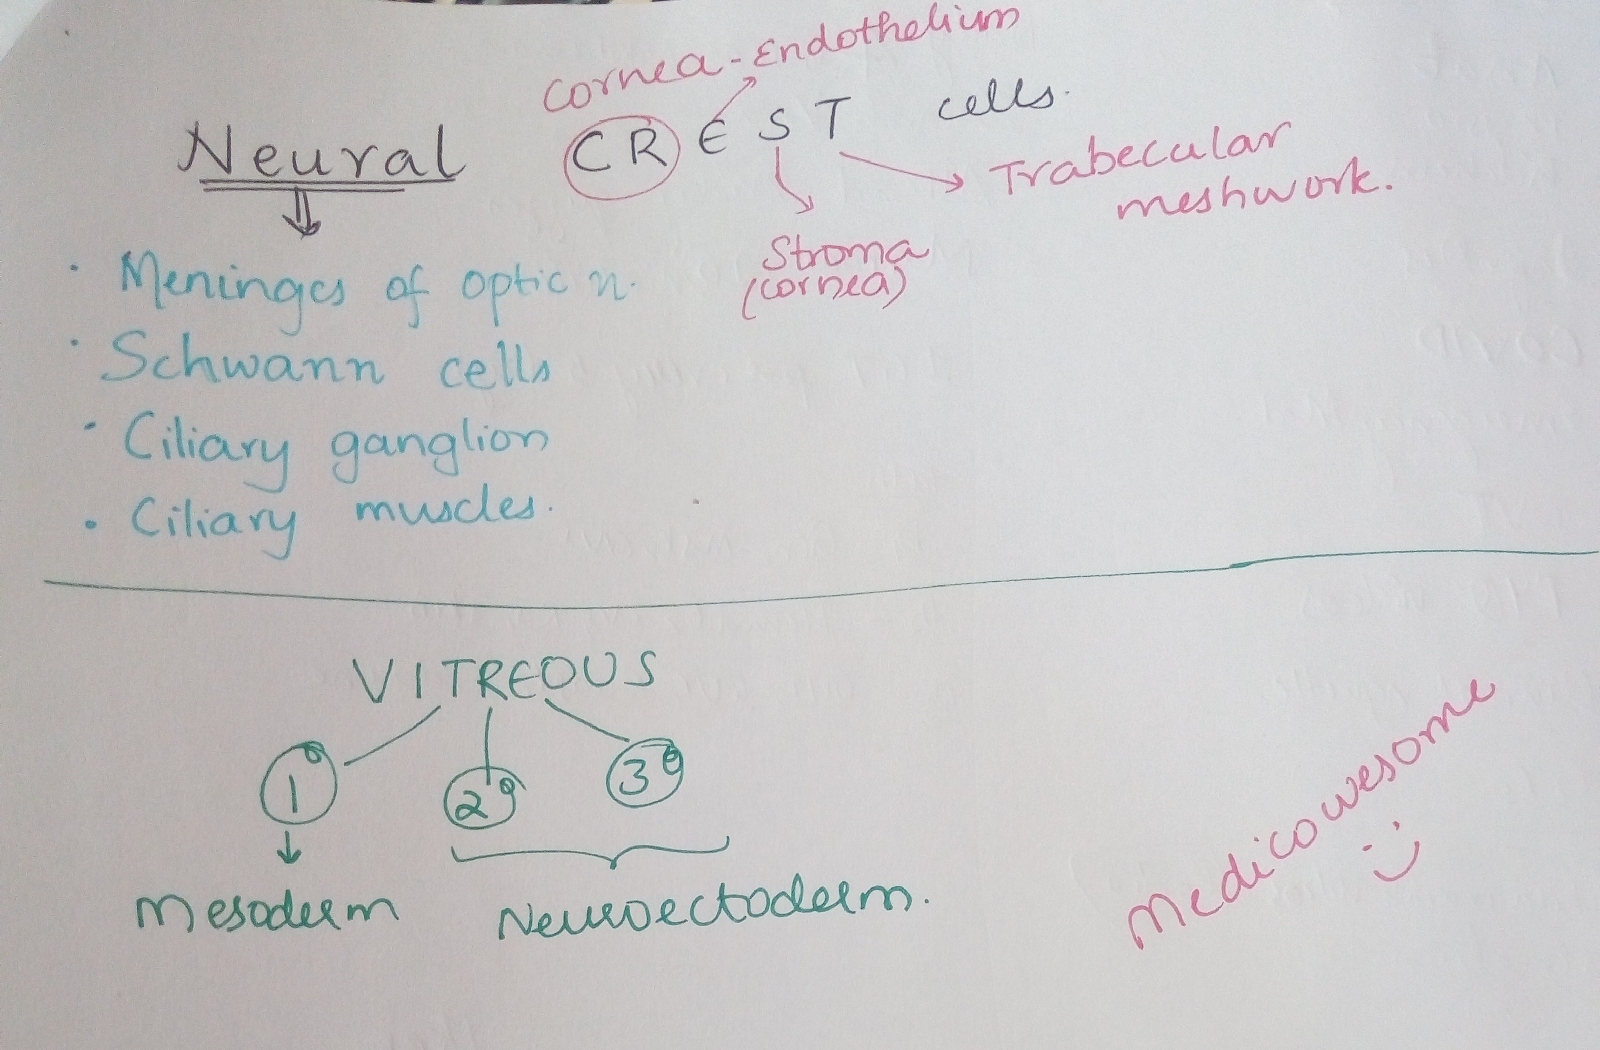 Cornea - Endothelium
Neural CREST cells.
Trabecular
meshwork.
Stroma
(cornea)
· Meninges of optic n.
· Schwann cells
· Ciliary ganglion
· Ciliary muscles.
VITREOUS
1° 2° 3°
Mesoderm Neuroectoderm.
Medicowesome